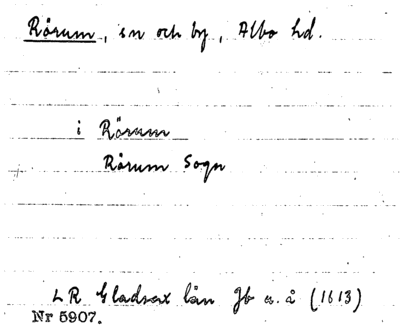 Rörum, sn och by, Albo hd.
i Rörum
Rörum Sogn
LR Gladsax län Jb u. å (1613)
Nr 5907.